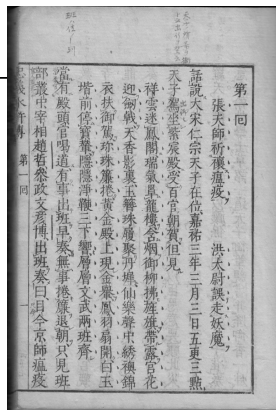 第一回
張天師祈禳瘟疫　洪太尉誤走妖魔
話說大宋仁宗天子在位嘉祐三年三月三日五更三點
天子駕坐紫宸殿受百官朝賀但見
祥雲迷鳳閣瑞氣罩龍樓含烟御柳拂旌旗帶露宮花
迎劍戟天香影裏玉簪珠履聚丹墀仙樂聲中綉襖錦
衣扶御駕珍珠簾捲黃金殿上現金轝鳳羽扇開白玉
堦前停寶輦隱隱淨鞭三下響層層文武兩班齊
當有殿頭官喝道有事出班早奏無事捲簾退朝只見班
部叢中宰相趙哲叅政文彥博出班奏曰目今京師瘟疫
水滸 第一回 一